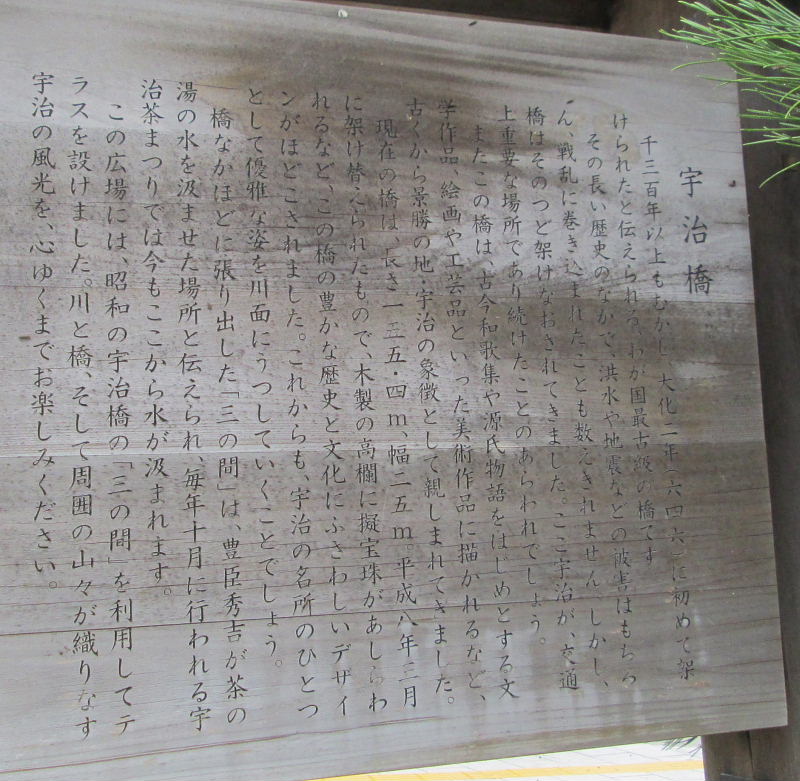 宇治橋
千三百年以上もむかし、大化二年(六四六)に初めて架
けられたと伝えられる、わが国最古級の橋です。
その長い歴史のなかで、洪水や地震などの被害はもちろ
ん、戦乱に巻き込まれたことも数えきれません。しかし、
橋はそのつど架けなおされてきました。ここ宇治が、交通
上重要な場所であり続けたことのあらわれでしょう。
またこの橋は、古今和歌集や源氏物語をはじめとする文
学作品、絵画や工芸品といった美術作品に描かれるなど、
古くから景勝の地・宇治の象徴として親しまれてきました。
現在の橋は、長さ一五五・四m、幅二五m。平成八年三月
に架け替えられたもので、木製の高欄に擬宝珠があしらわ
れるなど、この橋の豊かな歴史と文化にふさわしいデザイ
ンがほどこされました。これからも、宇治の名所のひとつ
として優雅な姿を川面にうつしていくことでしょう。
橋なかほどに張り出した「三の間」は、豊臣秀吉が茶の
湯の水を汲ませた場所と伝えられ、毎年十月に行われる宇
治茶まつりでは今もここから水が汲まれます。
この広場には、昭和の宇治橋の「三の間」を利用してテ
ラスを設けました。川と橋、そして周囲の山々が織りなす
宇治の風光を、心ゆくまでお楽しみください。